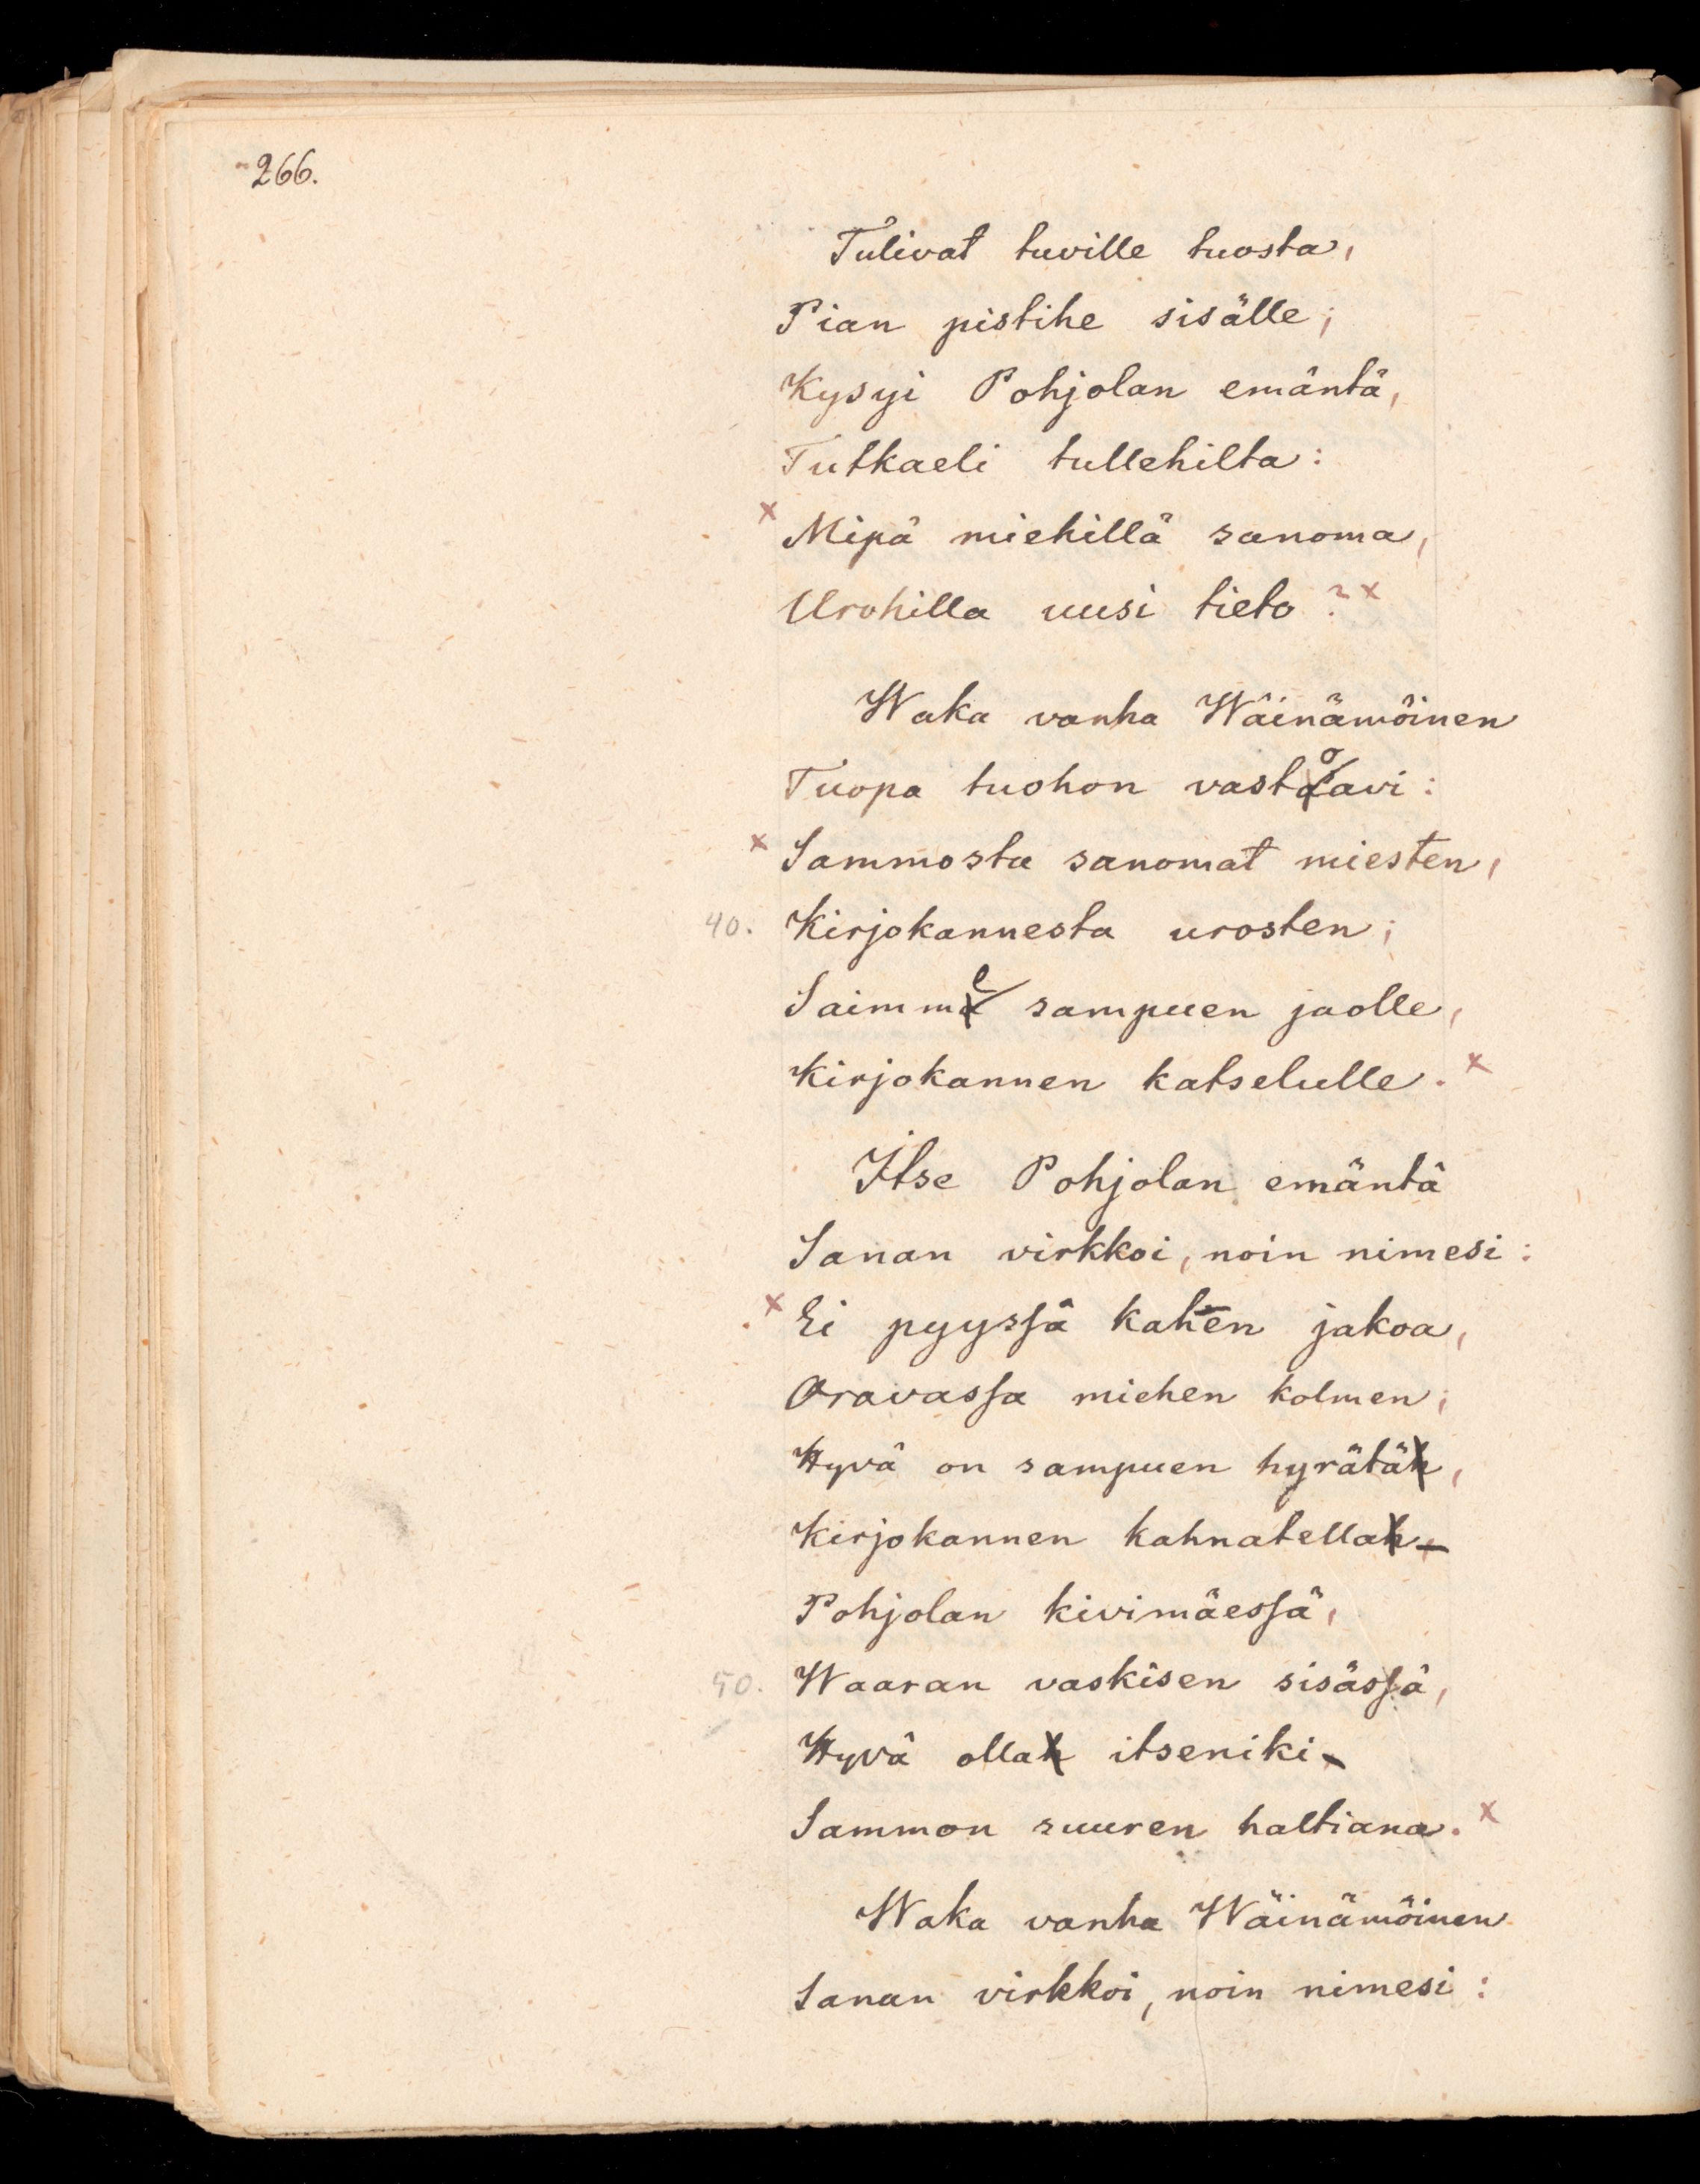 266.
Tulivat tuville tuosta,
Pian pistihe sisälle;
Kysyi Pohjolan emäntä,
Tutkaeli tullehilta:
× Mipä miehillä sanoma,
Urohilla uusi tieto? ×
Waka vanha Wäinämöinen
Tuopa tuohon vastoavi:
× Sammosta sanomat miesten,
40. Kirjokannesta urosten;
Saimme sampuen jaolle,
Kirjokannen katselulle. ×
Itse Pohjolan emäntä
Sanan virkkoi, noin nimesi:
× Ei pyyssä kahen jakoa,
Oravassa miehen kolmen;
Hyvä on sampuen hyrätä,
Kirjokannen kahnatella
Pohjolan kivimäessä,
50. Waaran vaskisen sisässä,
Hyvä olla itseniki
Sammon suuren haltiana. ×
Waka vanha Wäinämöinen
Sanan virkkoi, noin nimesi: